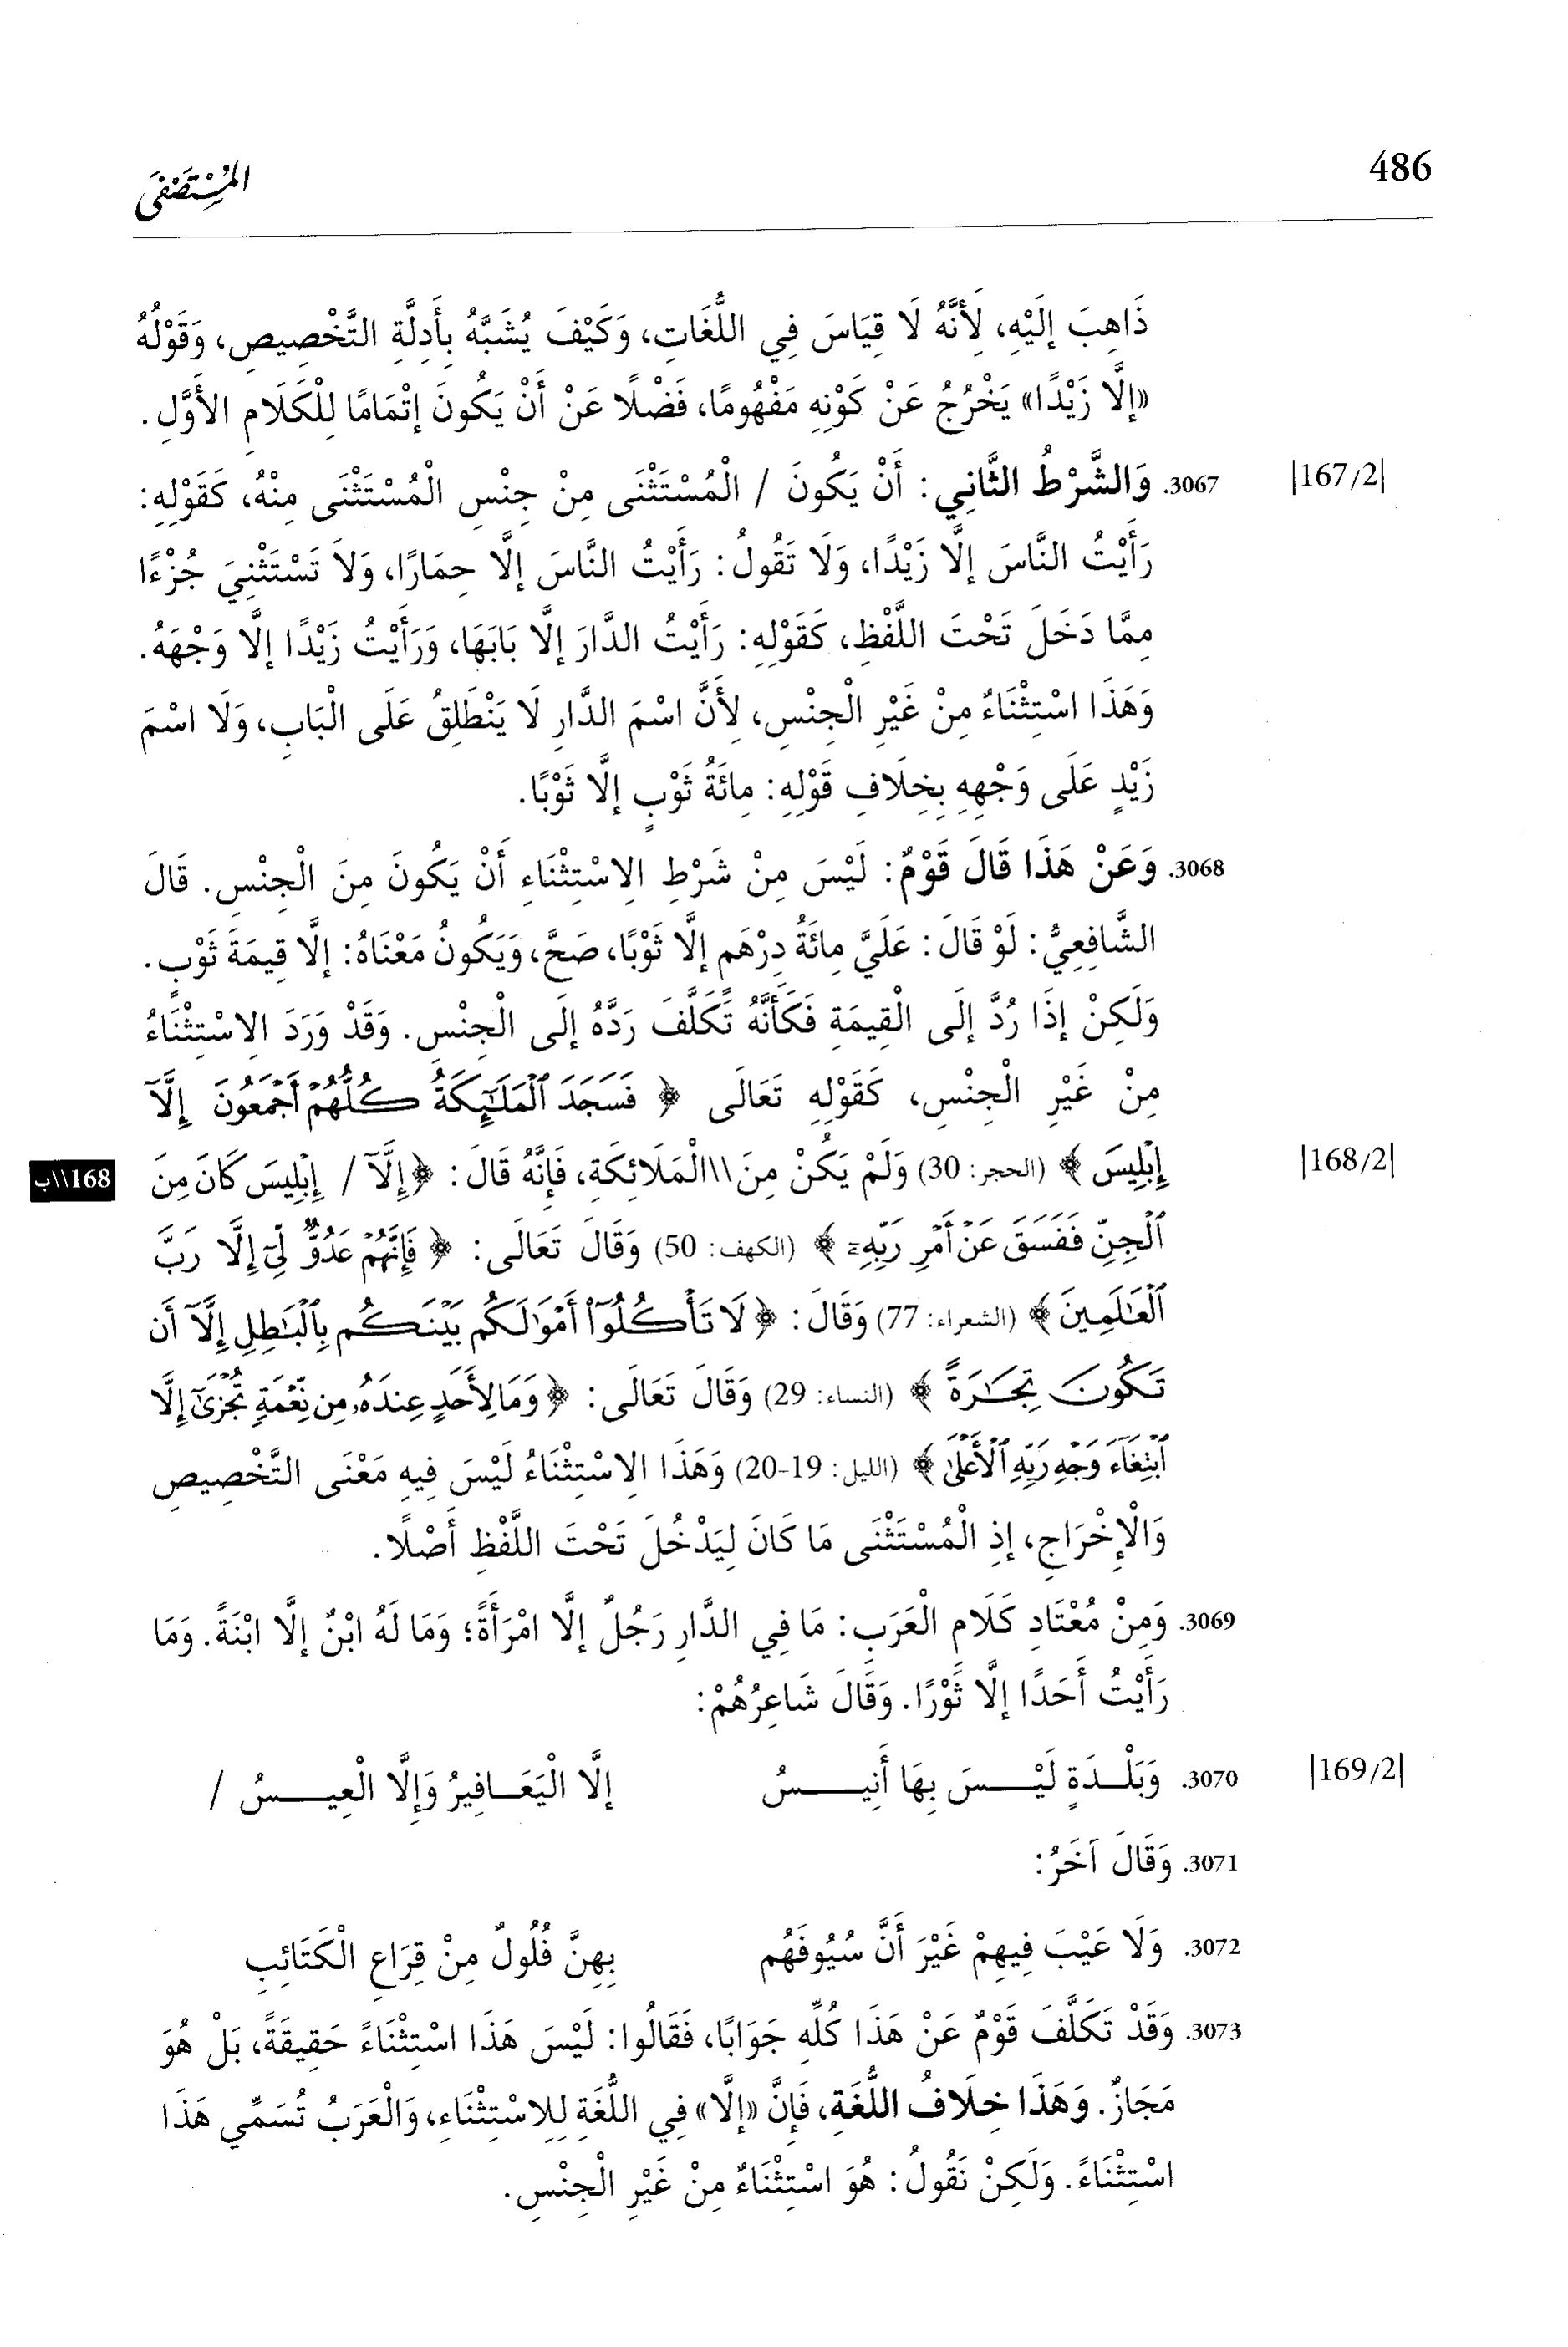 486
المُسْتَصْفَى
ذَاهِبَ إِلَيْهِ، لِأَنَّهُ لَا قِيَاسَ فِي اللُّغَاتِ، وَكَيْفَ يُشَبَّهُ بِأَدِلَّةِ التَّخْصِيصِ، وَقَوْلُهُ
«إِلَّا زَيْدًا» يَخْرُجُ عَنْ كَوْنِهِ مَفْهُومًا، فَضْلًا عَنْ أَنْ يَكُونَ إِتْمَامًا لِلْكَلَامِ الأَوَّلِ.
|167/2| 3067. وَالشَّرْطُ الثَّانِي: أَنْ يَكُونَ / الْمُسْتَثْنَى مِنْ جِنْسِ الْمُسْتَثْنَى مِنْهُ، كَقَوْلِهِ:
رَأَيْتُ النَّاسَ إِلَّا زَيْدًا، وَلَا تَقُولُ: رَأَيْتُ النَّاسَ إِلَّا حِمَارًا، وَلاَ تَسْتَثْنِيَ جُزْءًا
مِمَّا دَخَلَ تَحْتَ اللَّفْظِ، كَقَوْلِهِ: رَأَيْتُ الدَّارَ إِلَّا بَابَهَا، وَرَأَيْتُ زَيْدًا إِلَّا وَجْهَهُ.
وَهَذَا اسْتِثْنَاءٌ مِنْ غَيْرِ الْجِنْسِ، لِأَنَّ اسْمَ الدَّارِ لَا يَنْطَلِقُ عَلَى الْبَابِ، وَلَا اسْمَ
زَيْدٍ عَلَى وَجْهِهِ بِخِلَافِ قَوْلِهِ: مِائَةُ ثَوْبٍ إِلَّا ثَوْبًا.
3068. وَعَنْ هَذَا قَالَ قَوْمٌ: لَيْسَ مِنْ شَرْطِ الِاسْتِثْنَاءِ أَنْ يَكُونَ مِنَ الْجِنْسِ. قَالَ
الشَّافِعِيُّ: لَوْ قَالَ: عَلَيَّ مِائَةُ دِرْهَمٍ إِلَّا ثَوْبًا، صَحَّ، وَيَكُونُ مَعْنَاهُ: إِلَّا قِيمَةَ ثَوْبٍ.
وَلَكِنْ إِذَا رُدَّ إِلَى الْقِيمَةِ فَكَأَنَّهُ تَكَلَّفَ رَدَّهُ إِلَى الْجِنْسِ. وَقَدْ وَرَدَ الِاسْتِثْنَاءُ
مِنْ غَيْرِ الْجِنْسِ، كَقَوْلِهِ تَعَالَى ﴿ فَسَجَدَ ٱلْمَلَٰٓئِكَةُ كُلُّهُمْ أَجْمَعُونَ إِلَّآ
|168/2| إِبْلِيسَ ﴾ (الحجر: 30) وَلَمْ يَكُنْ مِنَ \\الْمَلَائِكَةِ، فَإِنَّهُ قَالَ: ﴿إِلَّآ / إِبْلِيسَ كَانَ مِنَ 168\\ب
ٱلْجِنِّ فَفَسَقَ عَنْ أَمْرِ رَبِّهِۦٓ ﴾ (الكهف: 50) وَقَالَ تَعَالَى: ﴿ فَإِنَّهُمْ عَدُوٌّ لِّيٓ إِلَّا رَبَّ
ٱلْعَٰلَمِينَ ﴾ (الشعراء: 77) وَقَالَ: ﴿ لَا تَأْكُلُوٓاْ أَمْوَٰلَكُم بَيْنَكُم بِٱلْبَٰطِلِ إِلَّآ أَن
تَكُونَ تِجَٰرَةً ﴾ (النساء: 29) وَقَالَ تَعَالَى: ﴿ وَمَا لِأَحَدٍ عِندَهُۥ مِن نِّعْمَةٍ تُجْزَىٰٓ إِلَّا
ٱبْتِغَآءَ وَجْهِ رَبِّهِ ٱلْأَعْلَىٰ ﴾ (الليل: 19-20) وَهَذَا الِاسْتِثْنَاءُ لَيْسَ فِيهِ مَعْنَى التَّخْصِيصِ
وَالْإِخْرَاجِ، إِذِ الْمُسْتَثْنَى مَا كَانَ لِيَدْخُلَ تَحْتَ اللَّفْظِ أَصْلًا.
3069. وَمِنْ مُعْتَادِ كَلَامِ الْعَرَبِ: مَا فِي الدَّارِ رَجُلٌ إِلَّا امْرَأَةً؛ وَمَا لَهُ ابْنٌ إِلَّا ابْنَةً. وَمَا
رَأَيْتُ أَحَدًا إِلَّا ثَوْرًا. وَقَالَ شَاعِرُهُمْ:
|169/2| 3070. وَبَلْدَةٍ لَيْسَ بِهَا أَنِيسُ إِلَّا الْيَعَافِيرُ وَإِلَّا الْعِيسُ /
3071. وَقَالَ آخَرُ:
3072. وَلَا عَيْبَ فِيهِمْ غَيْرَ أَنَّ سُيُوفَهُم بِهِنَّ فُلُولٌ مِنْ قِرَاعِ الْكَتَائِبِ
3073. وَقَدْ تَكَلَّفَ قَوْمٌ عَنْ هَذَا كُلِّهِ جَوَابًا، فَقَالُوا: لَيْسَ هَذَا اسْتِثْنَاءً حَقِيقَةً، بَلْ هُوَ
مَجَازٌ. وَهَذَا خِلَافُ اللُّغَةِ، فَإِنَّ «إِلَّا» فِي اللُّغَةِ لِلِاسْتِثْنَاءِ، وَالْعَرَبُ تُسَمِّي هَذَا
اسْتِثْنَاءً. وَلَكِنْ نَقُولُ: هُوَ اسْتِثْنَاءٌ مِنْ غَيْرِ الْجِنْسِ.